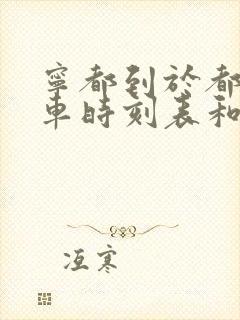 寧都到於都
車時刻表和
冱寒